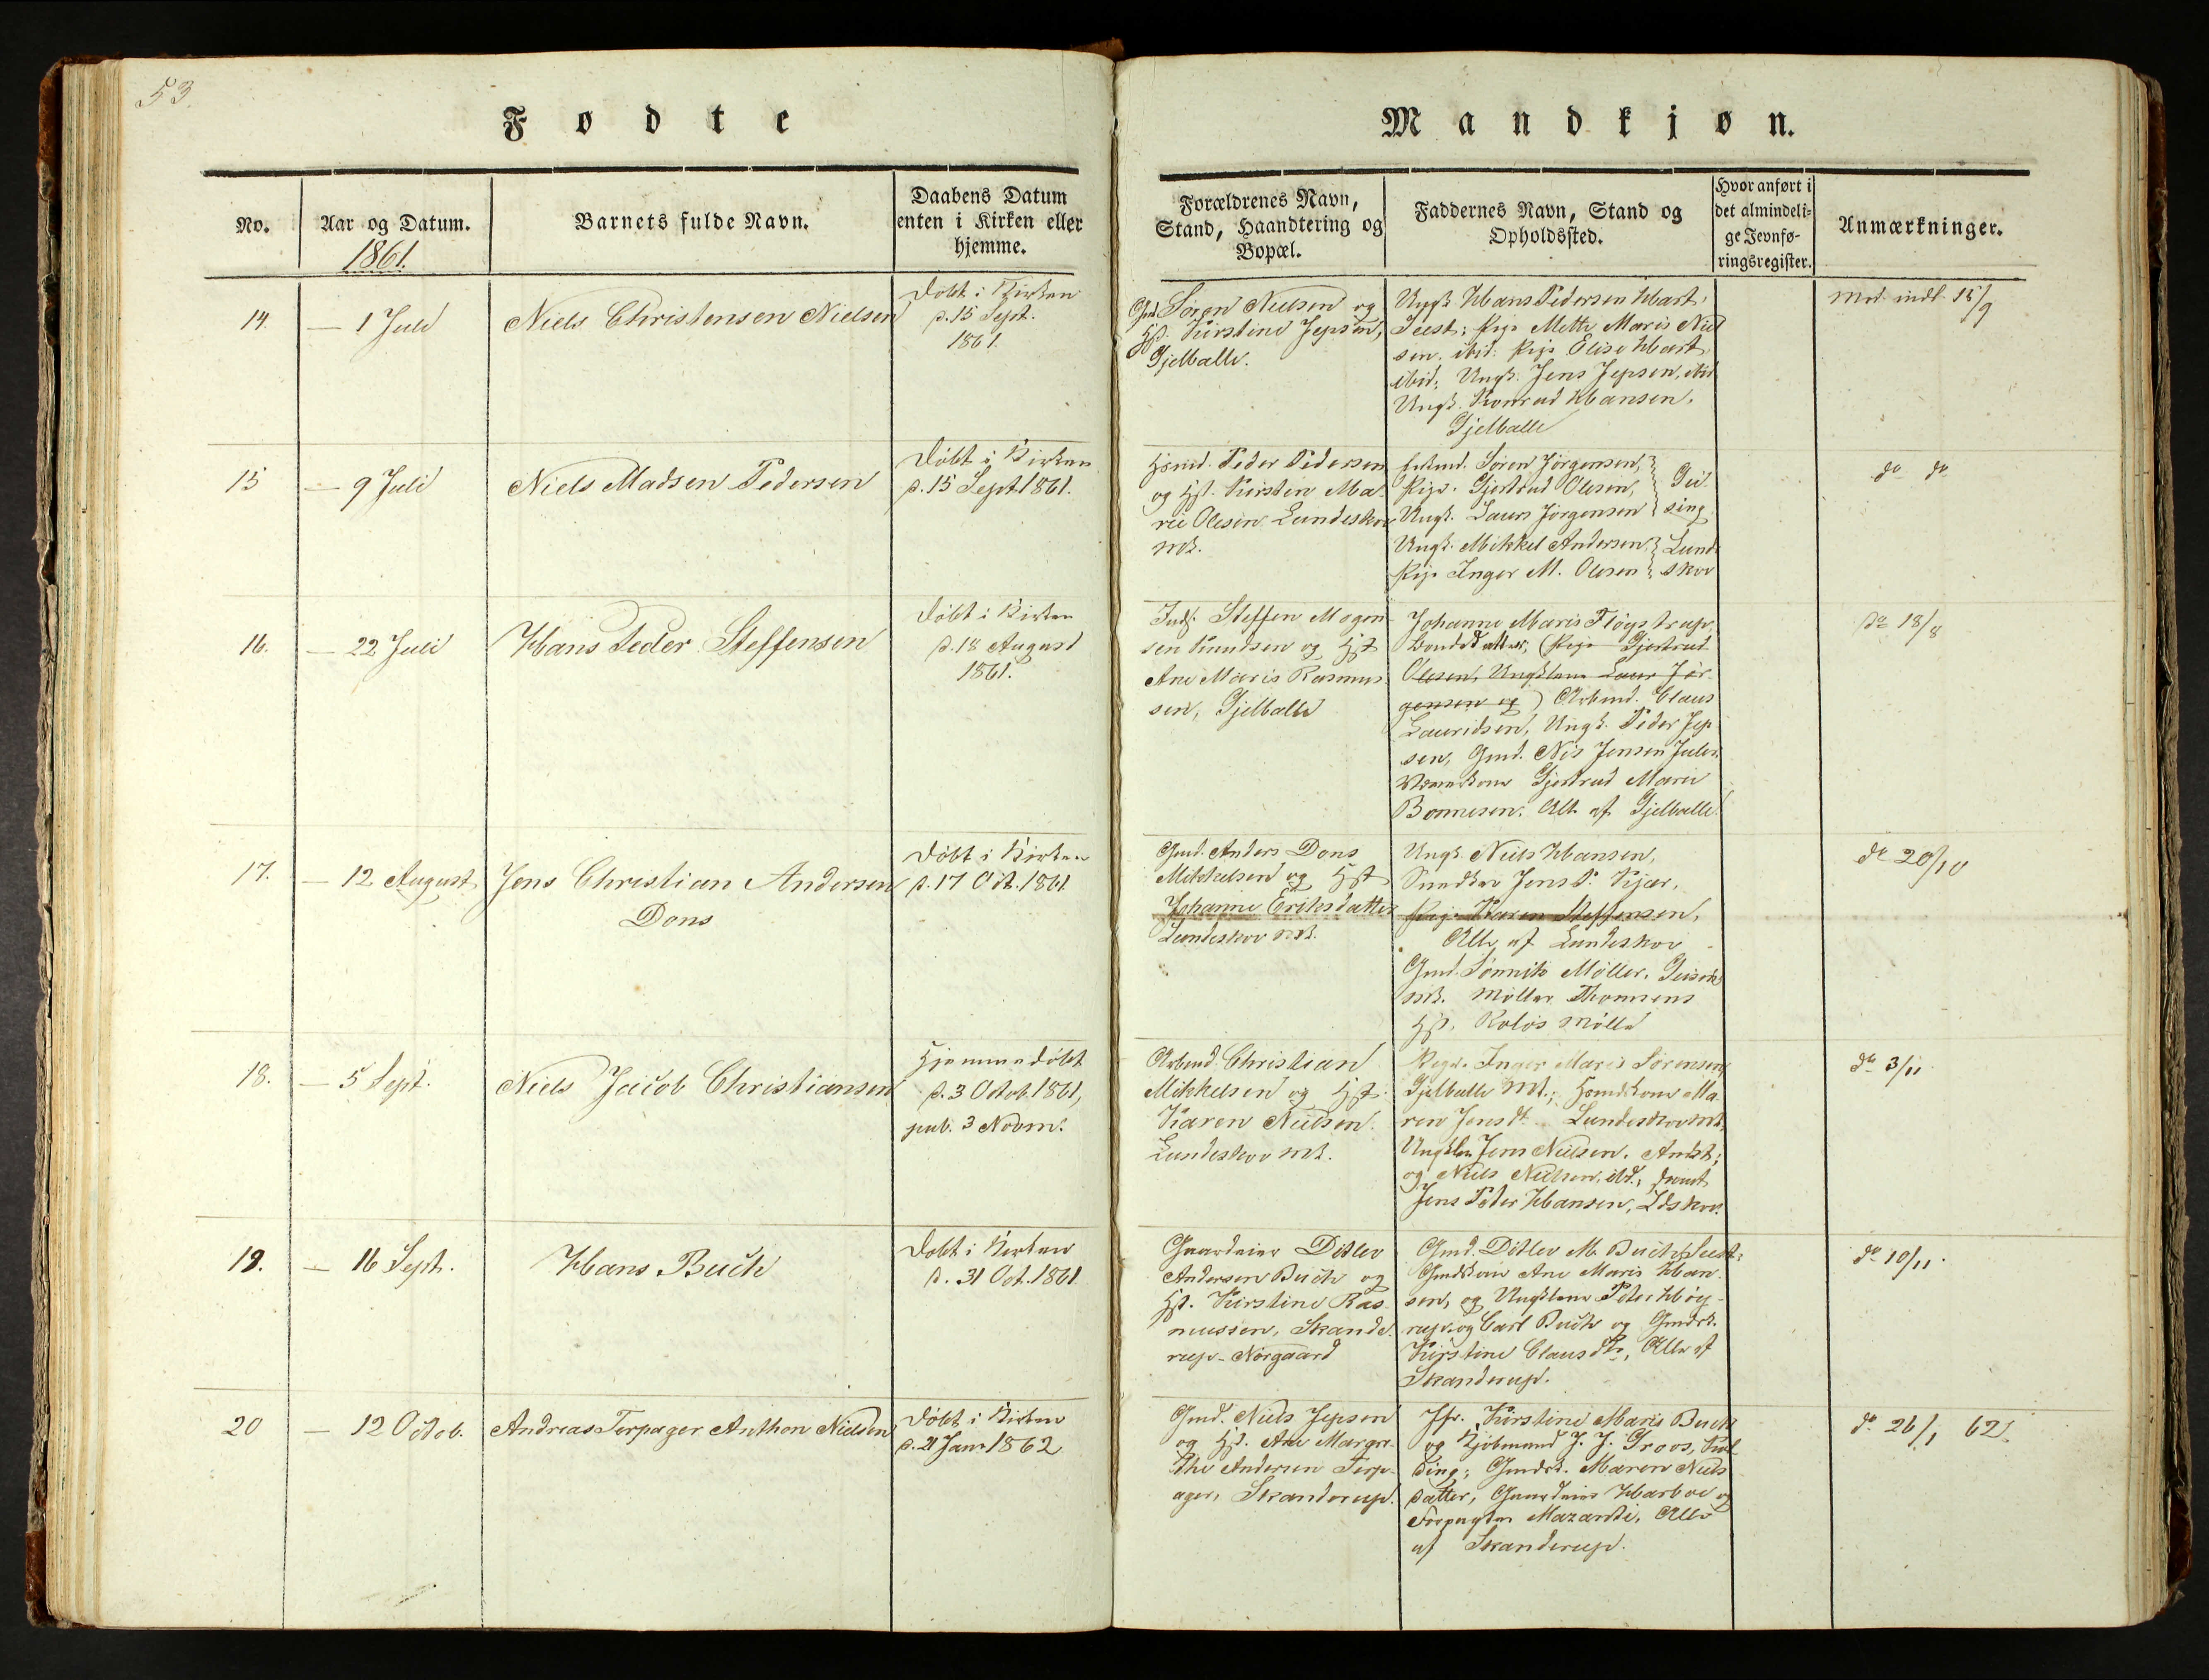 53.
Fødte
Mandkjøn.
No.
Aar og Datum.
1861.
Barnets fulde Navn.
Daabens Datum
enten i Kirken eller
hjemme.
Forældrenes Navn,
Stand, Haandtering og
Bopæl.
Faddernes Navn, Stand og
Opholdssted.
Hvor anført i
det almindeli-
ge Jevnfø-
ringsregister.
Anmærkninger.
14.
— 1 Juli
Niels Christensen Nielsen
Døbt i Kirken
d. 15 Sept.
1861.
Gmd. Søren Nielsen og
Hst. Kirstine Jepsen,
Gjelballe.
Ungk. Hans Pedersen Hart,
Seest; Pige Mette Marie Niel
sen, ibid: Pige Elise Hart
ibid; Ungk. Jens Jepsen, ibid
Ungk. Konrad Hansen,
Gjelballe
Mod. indl. 15/9
15
— 9 Juli
Niels Madsen Pedersen
Døbt i Kirken
d. 15 Sept. 1861.
Hsmd. Peder Pedersen
og Hst. Kirsten Ma-
rie Olesen Lundeskov
Mk.
Søren Jørgensen,
Pige. Gjertrud Olesen,
Ungk. Laurs Jørgensen
Gei
sing
Ungk. Mikkel Andersen,
Pige Inger M. Olesen
Lund
skov
do do
16.
— 22 Juli
Hans Peder Steffensen
Døbt i Kirken
d. 18 August
1861.
Inds. Steffen Mogen
sen Knudsen og Hst
Ane Marie Rasmus
sen, Gjelballe
Johanne Marie Fløystrup,
Bondedatter; (Pige Gjertrud
Olesen, Ungklene Laur Jør
gensen og) Arbmd. Claus
Lauridsen, Ungk. Peder Jep
sen, Gmd. Nis Jensen Juler.
Gjertrud Marie
Bonnesen. Alle af Gjelballe
do 18/8
17.
— 12 August
Jens Christian Andersen
Dons
Døbt i Kirken
d. 17 Oct. 1861
Gmd. Anders Dons
Mikkelsen og Hst
Johanne Eriksdatter
Lundeskov Mk.
Ungk. Niels Hansen,
Snedker Jens P. Kjær,
Pige Karen Steffensen,
Alle af Lundeskov
Gmd. Sønnik Møller,
Mk. Møller Thomsens
Hst. Roløs Mølle
do 20/10
18.
— 5 Sept.
Niels Jacob Christiansen
Hjemmedøbt
d. 3 Octob. 1861,
pub. 3 Novm.
Arbmd. Christian
Mikkelsen og Hst.
Karen Nielsen.
Lundeskov Mk.
Pige. Inger Marie Sørensen,
Gjelballe Mk.; Hsmdkone Ma
ren Jensdt. Lundeskov Mk,
Ungklne Jens Nielsen. Andst;
og Niels Nielsen, ibd.;
Jens Peter Hansen, Ldskov.
do 3/11.
19.
— 16 Sept.
Hans Buch
Døbt i Kirken
d. 31 Oct. 1861
Gaardeier Ditlev
Andersen Buch og
Hst. Kirstine Ras-
mussen, Skande-
rup-Nørgaard
Gmd. Ditlev M. Buch, Seest;
Gmdkone Ane Marie Han-
sen, og Ungklene Peter Høy-
rup, og Carl Buch og Gmdk.
Kirstine Clausdtr, Alle af
Skanderup.
do 10/11.
20
— 12 Octob.
Andreas Terpager Anthon Nielsen
Døbt i Kirken
d. 21 Jan 1862
Gmd. Niels Jepsen
og Hst. Ane Margre-
the Andersen Terp-
ager, Skanderup.
Jfr. Kirstine Marie Buch
og Kjøbmand J. J. Groos, Kol
ding; Gmdk. Maren Niels
datter, Gaardeier Harboe og
Forpagter Mazanti, Alle
af Skanderup.
do 26/1 62